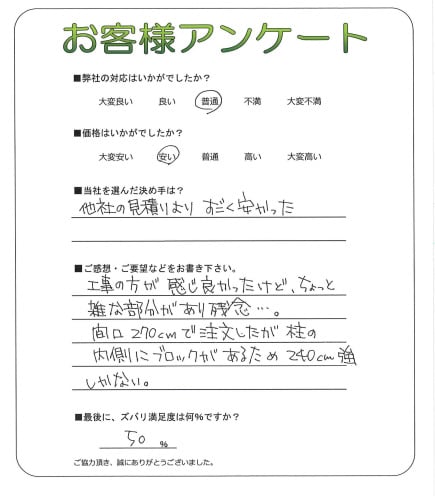 お客様アンケート
■弊社の対応はいかがでしたか？
大変良い 良い 普通 不満 大変不満
■価格はいかがでしたか？
大変安い 安い 普通 高い 大変高い
■当社を選んだ決め手は？
他社の見積りより だく安かった
■ご感想・ご要望などをお書き下さい。
工事の方が 感じ良かったけど、ちょっと
雑な部分があり残念…。
間口270cmで注文したが 柱の
内側にブロックがあるため 240cm強
しかない。
■最後に、ズバリ満足度は何%ですか？
50 %
ご協力頂き、誠にありがとうございました。